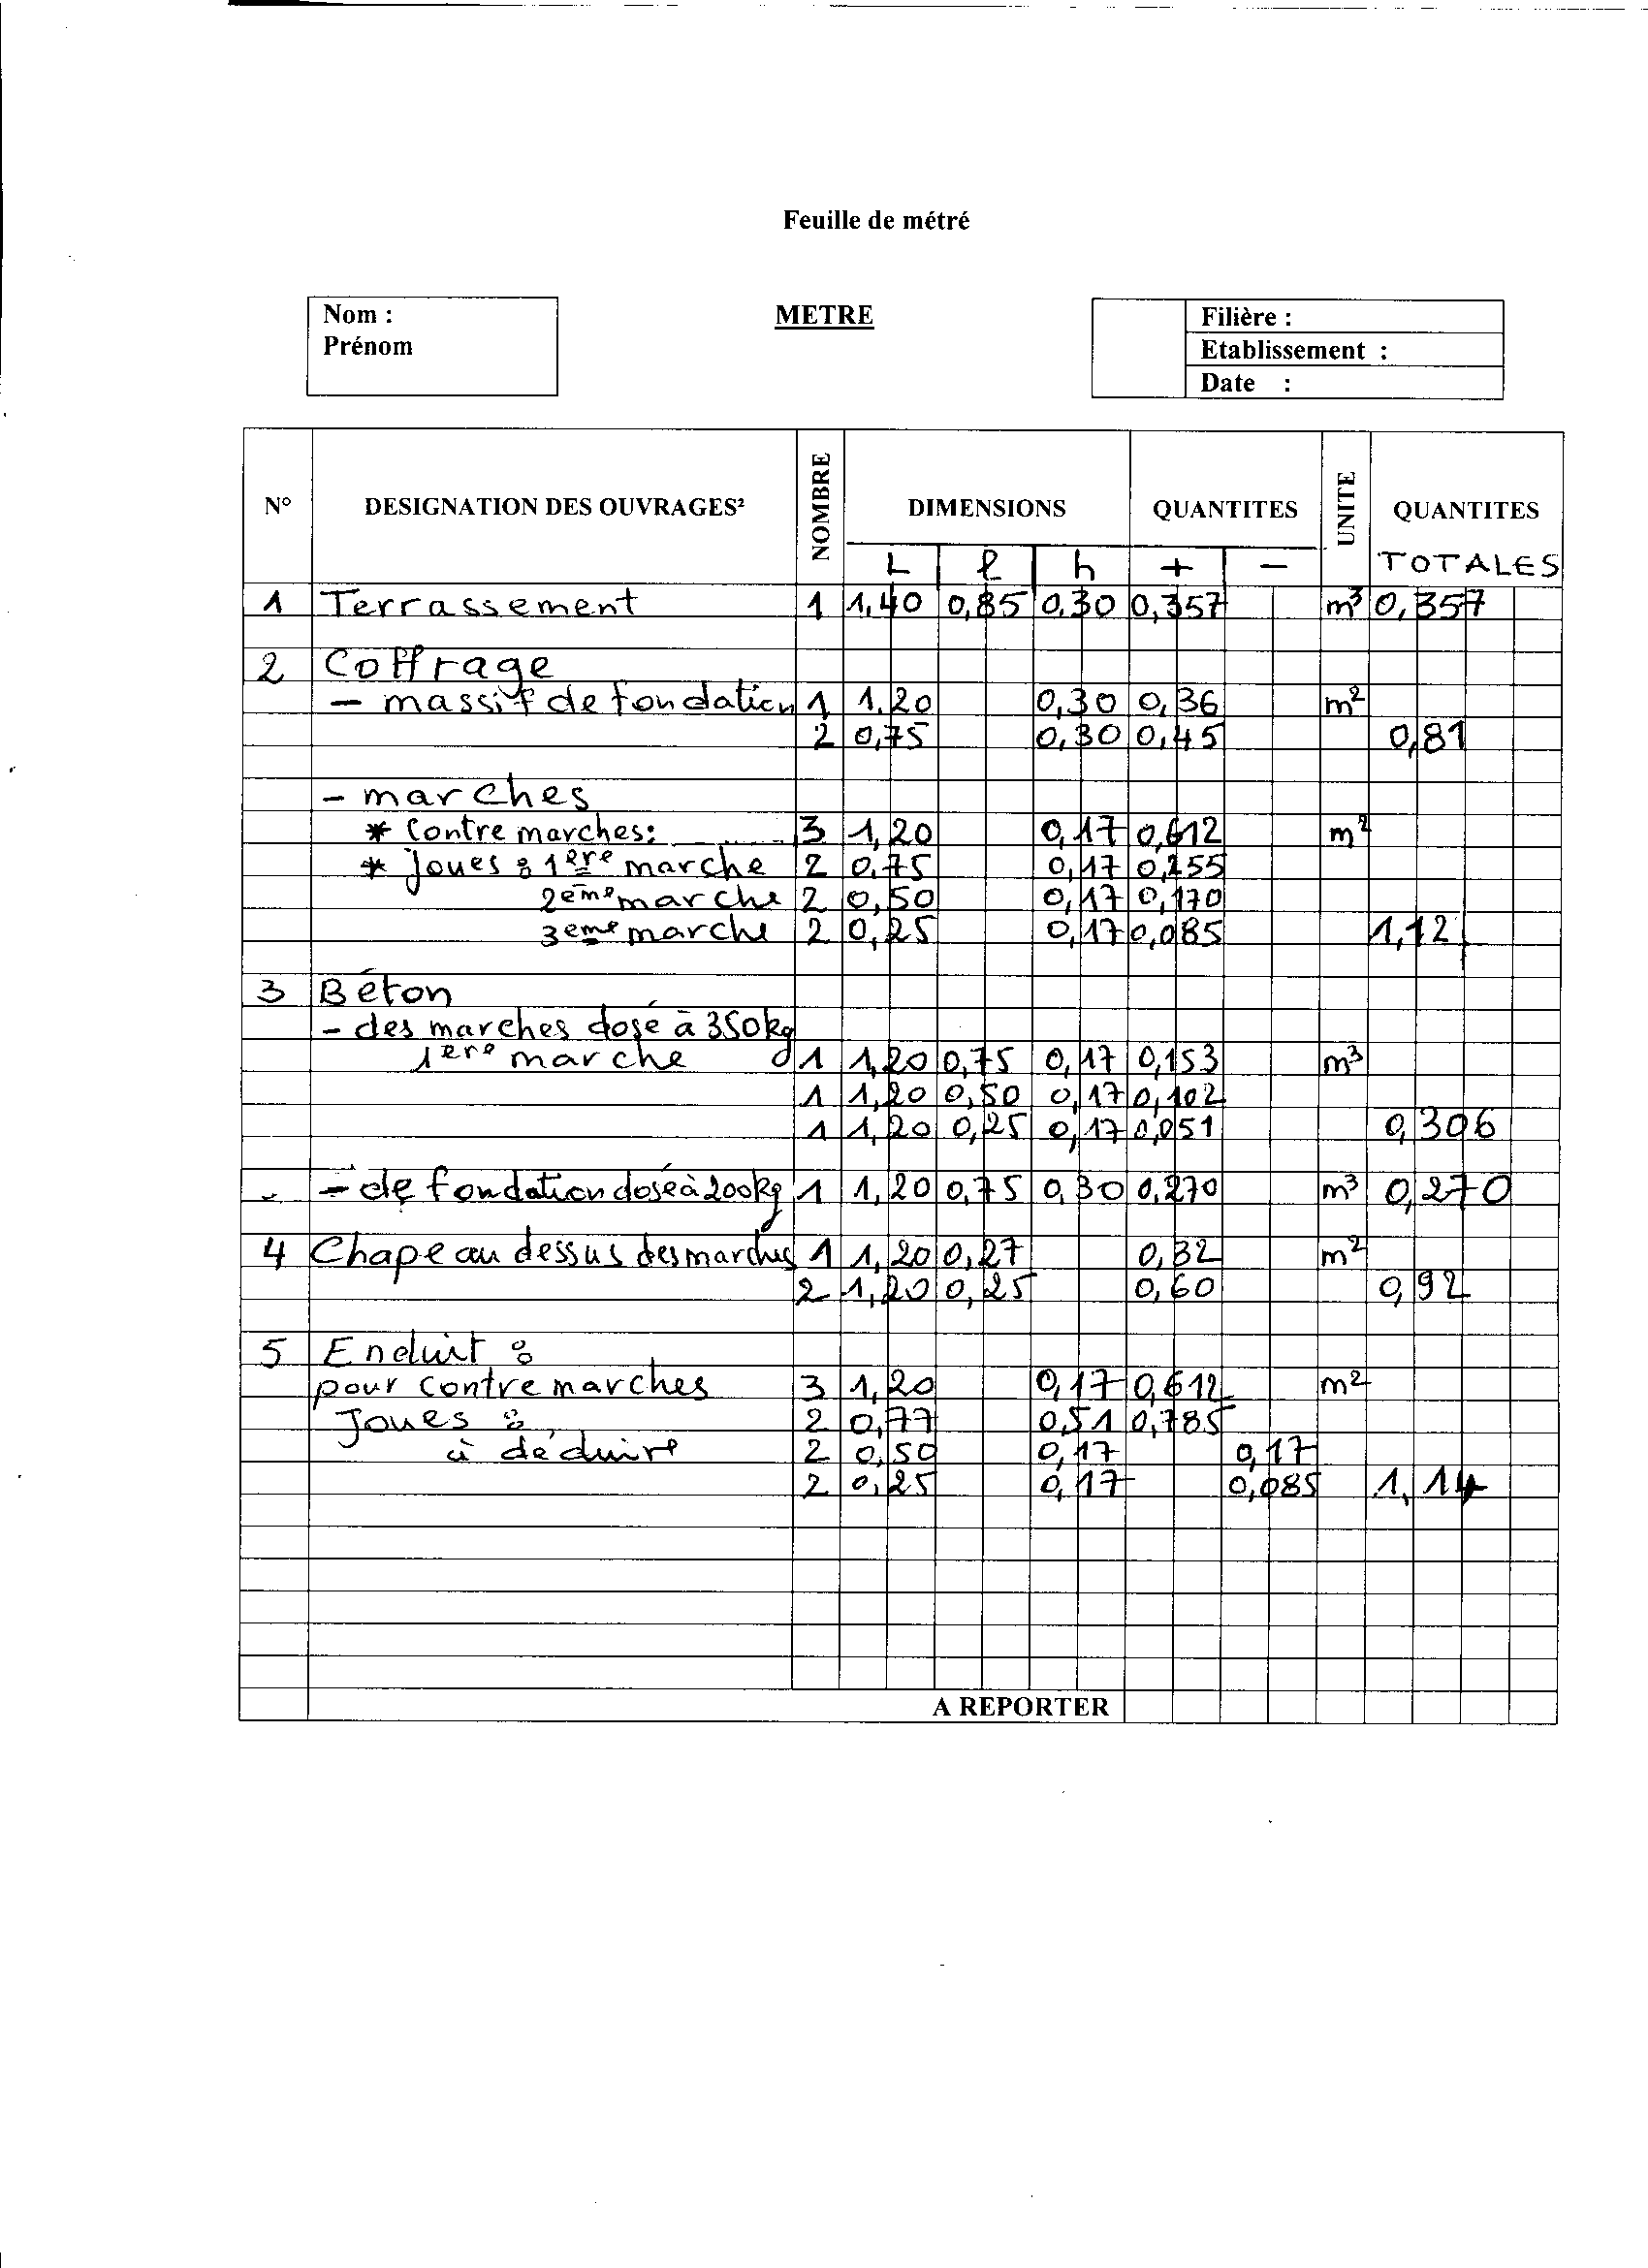 Feuille de métré
Nom :
Prénom
METRE
Filière :
Etablissement :
Date :
N° DESIGNATION DES OUVRAGES² NOMBRE DIMENSIONS QUANTITES UNITE QUANTITES
L l h + - TOTALES
1 Terrassement 1 1,40 0,85 0,30 0,357 m³ 0,357
2 Coffrage
- massif de fondation 1 1,20 0,30 0,36 m²
2 0,75 0,30 0,45 0,81
- marches
* Contre marches: 3 1,20 0,17 0,612 m²
* Joues : 1ère marche 2 0,75 0,17 0,255
2ème marche 2 0,50 0,17 0,170
3eme marche 2 0,25 0,17 0,085 1,12
3 Béton
- des marches dosé à 350kg
1ere marche 1 1,20 0,75 0,17 0,153 m³
1 1,20 0,50 0,17 0,102
1 1,20 0,25 0,17 0,051 0,306
- de fondation dosé à 200kg 1 1,20 0,75 0,30 0,270 m³ 0,270
4 Chape au dessus des marches 1 1,20 0,27 0,32 m²
2 1,20 0,25 0,60 0,92
5 Enduit :
pour contre marches 3 1,20 0,17 0,612 m²
Joues : 2 0,77 0,51 0,785
à déduire 2 0,50 0,17 0,17
2 0,25 0,17 0,085 1,14
A REPORTER